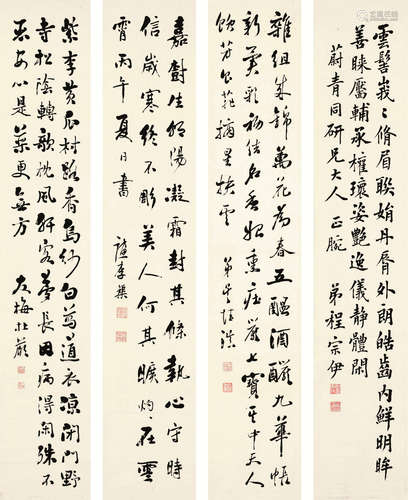 雲髻峩峩脩眉聯娟丹脣外朗皓齒內鮮明眸
善睞靨輔承權瓌姿艷逸儀靜體閑
蔚青同研兄大人正腕 弟程宗伊
雜組成錦萬花為春五醞酒釀九華帳
新異彩初結名香始熏莊嚴七寶其中天人
飲芳食菲摘星抉雲 弟
嘉樹生朝陽凝霜封其條執心守時
信歲寒終不彫美人何其曠灼灼在雲
霄丙午夏日書
紫李黃瓜村路香烏紗白葛道衣涼閉門野
寺松陰轉欹枕風軒客夢長因病得閑殊不
惡安心是藥更無方 友梅杜嚴